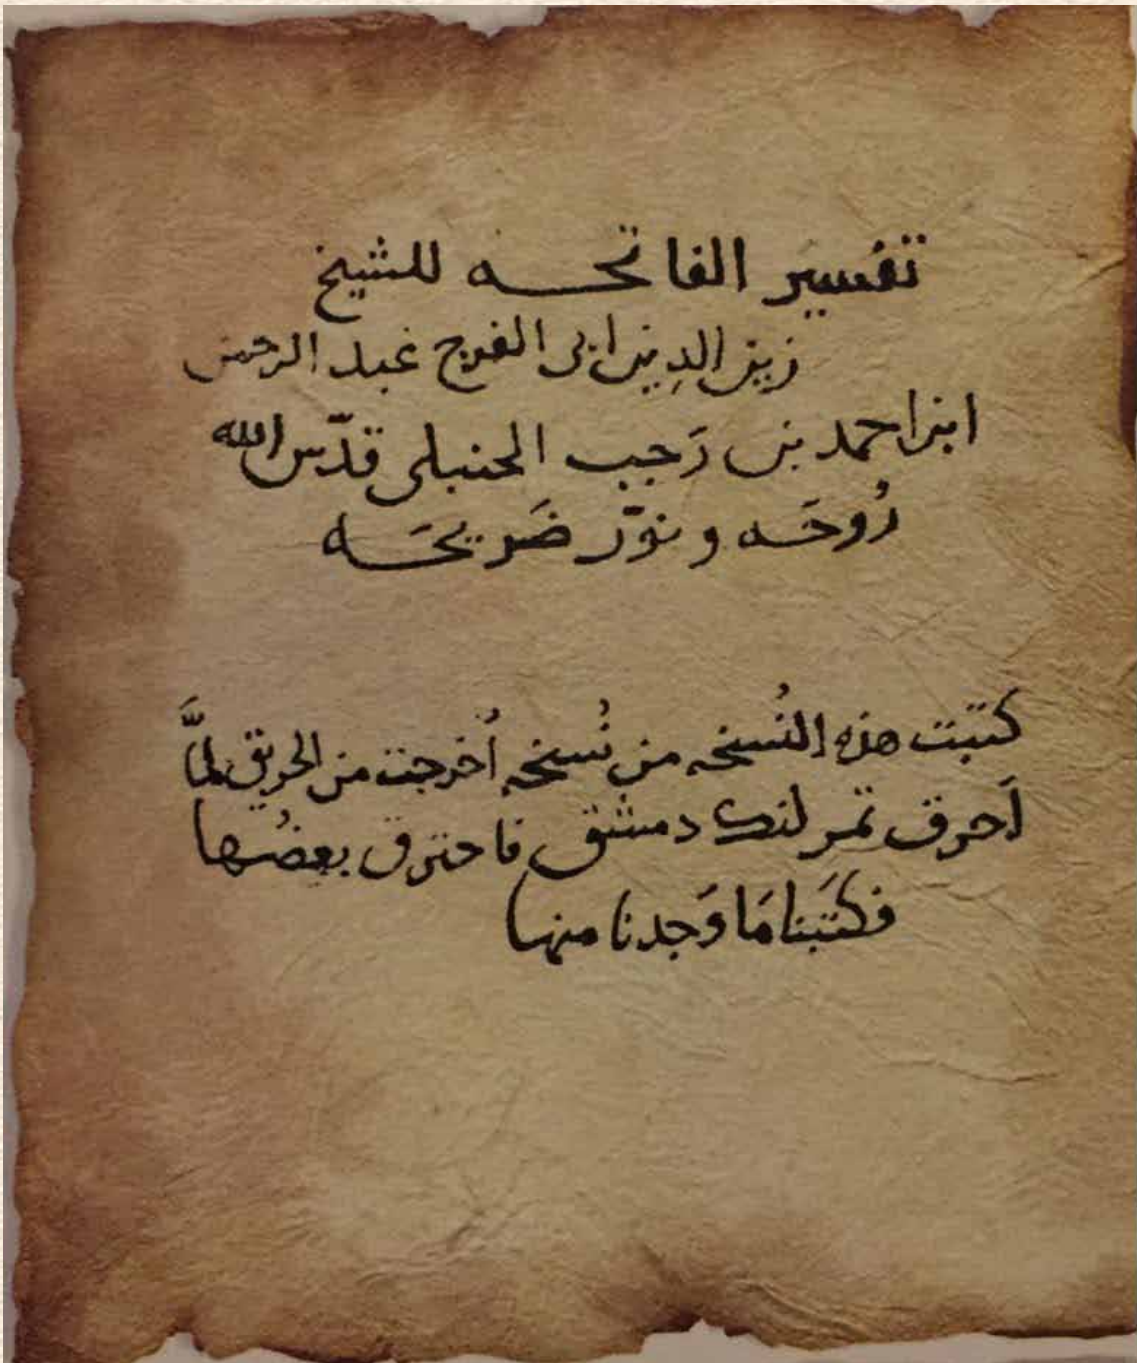 تفسير الفاتحه للشيخ
زين الدين ابى الفرج عبد الرحمن
ابن احمد بن رَجب الحنبلى قدّس الله
رُوحَه و نوّر ضَريحَه
كتبت هذه النُسخه من نُسخهٍ أُخرجت من الحريق لمَّا
اَحرق تمر لنك دمشق فاحترق بعضُها
فكتَبنا مَا وَجدنا منها